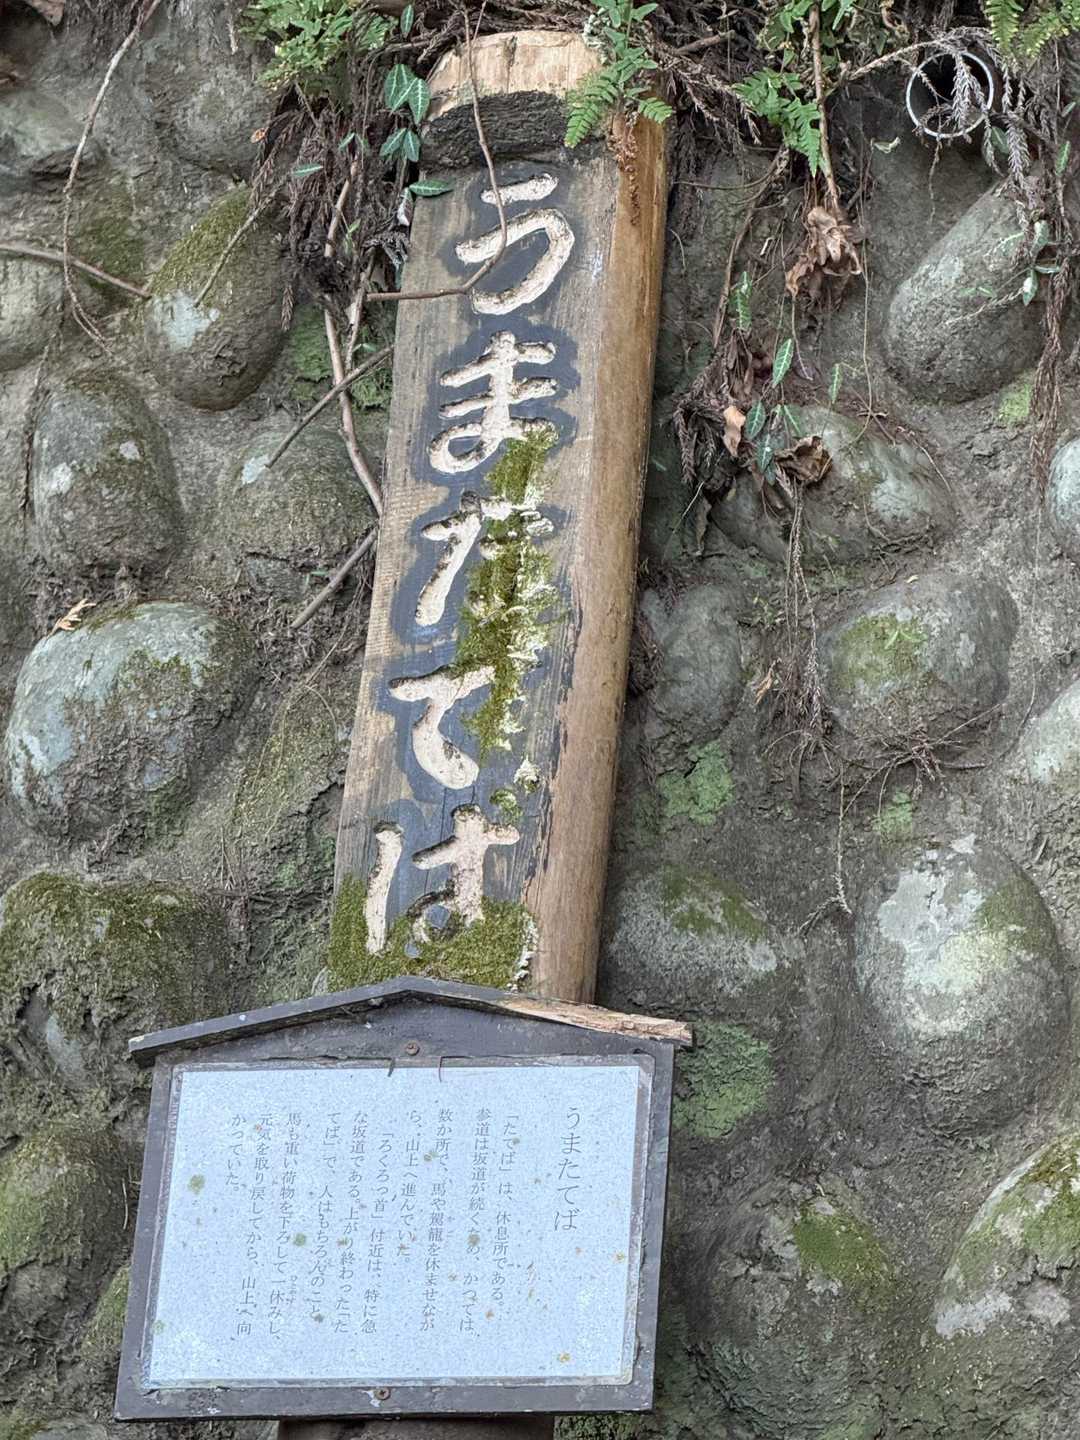 うまたてば
うまたてば
「たてば」は、休息所である。
参道は坂道が続くため、かつては、
数か所で、馬や駕籠を休ませなが
ら、山上へ進んでいた。
「ろくろっ首」付近は、特に急
な坂道である。上がり終わった「た
てば」で、人はもちろんのこと、
馬も重い荷物を下ろして一休みし、
元気を取り戻してから、山上へ向
かっていた。